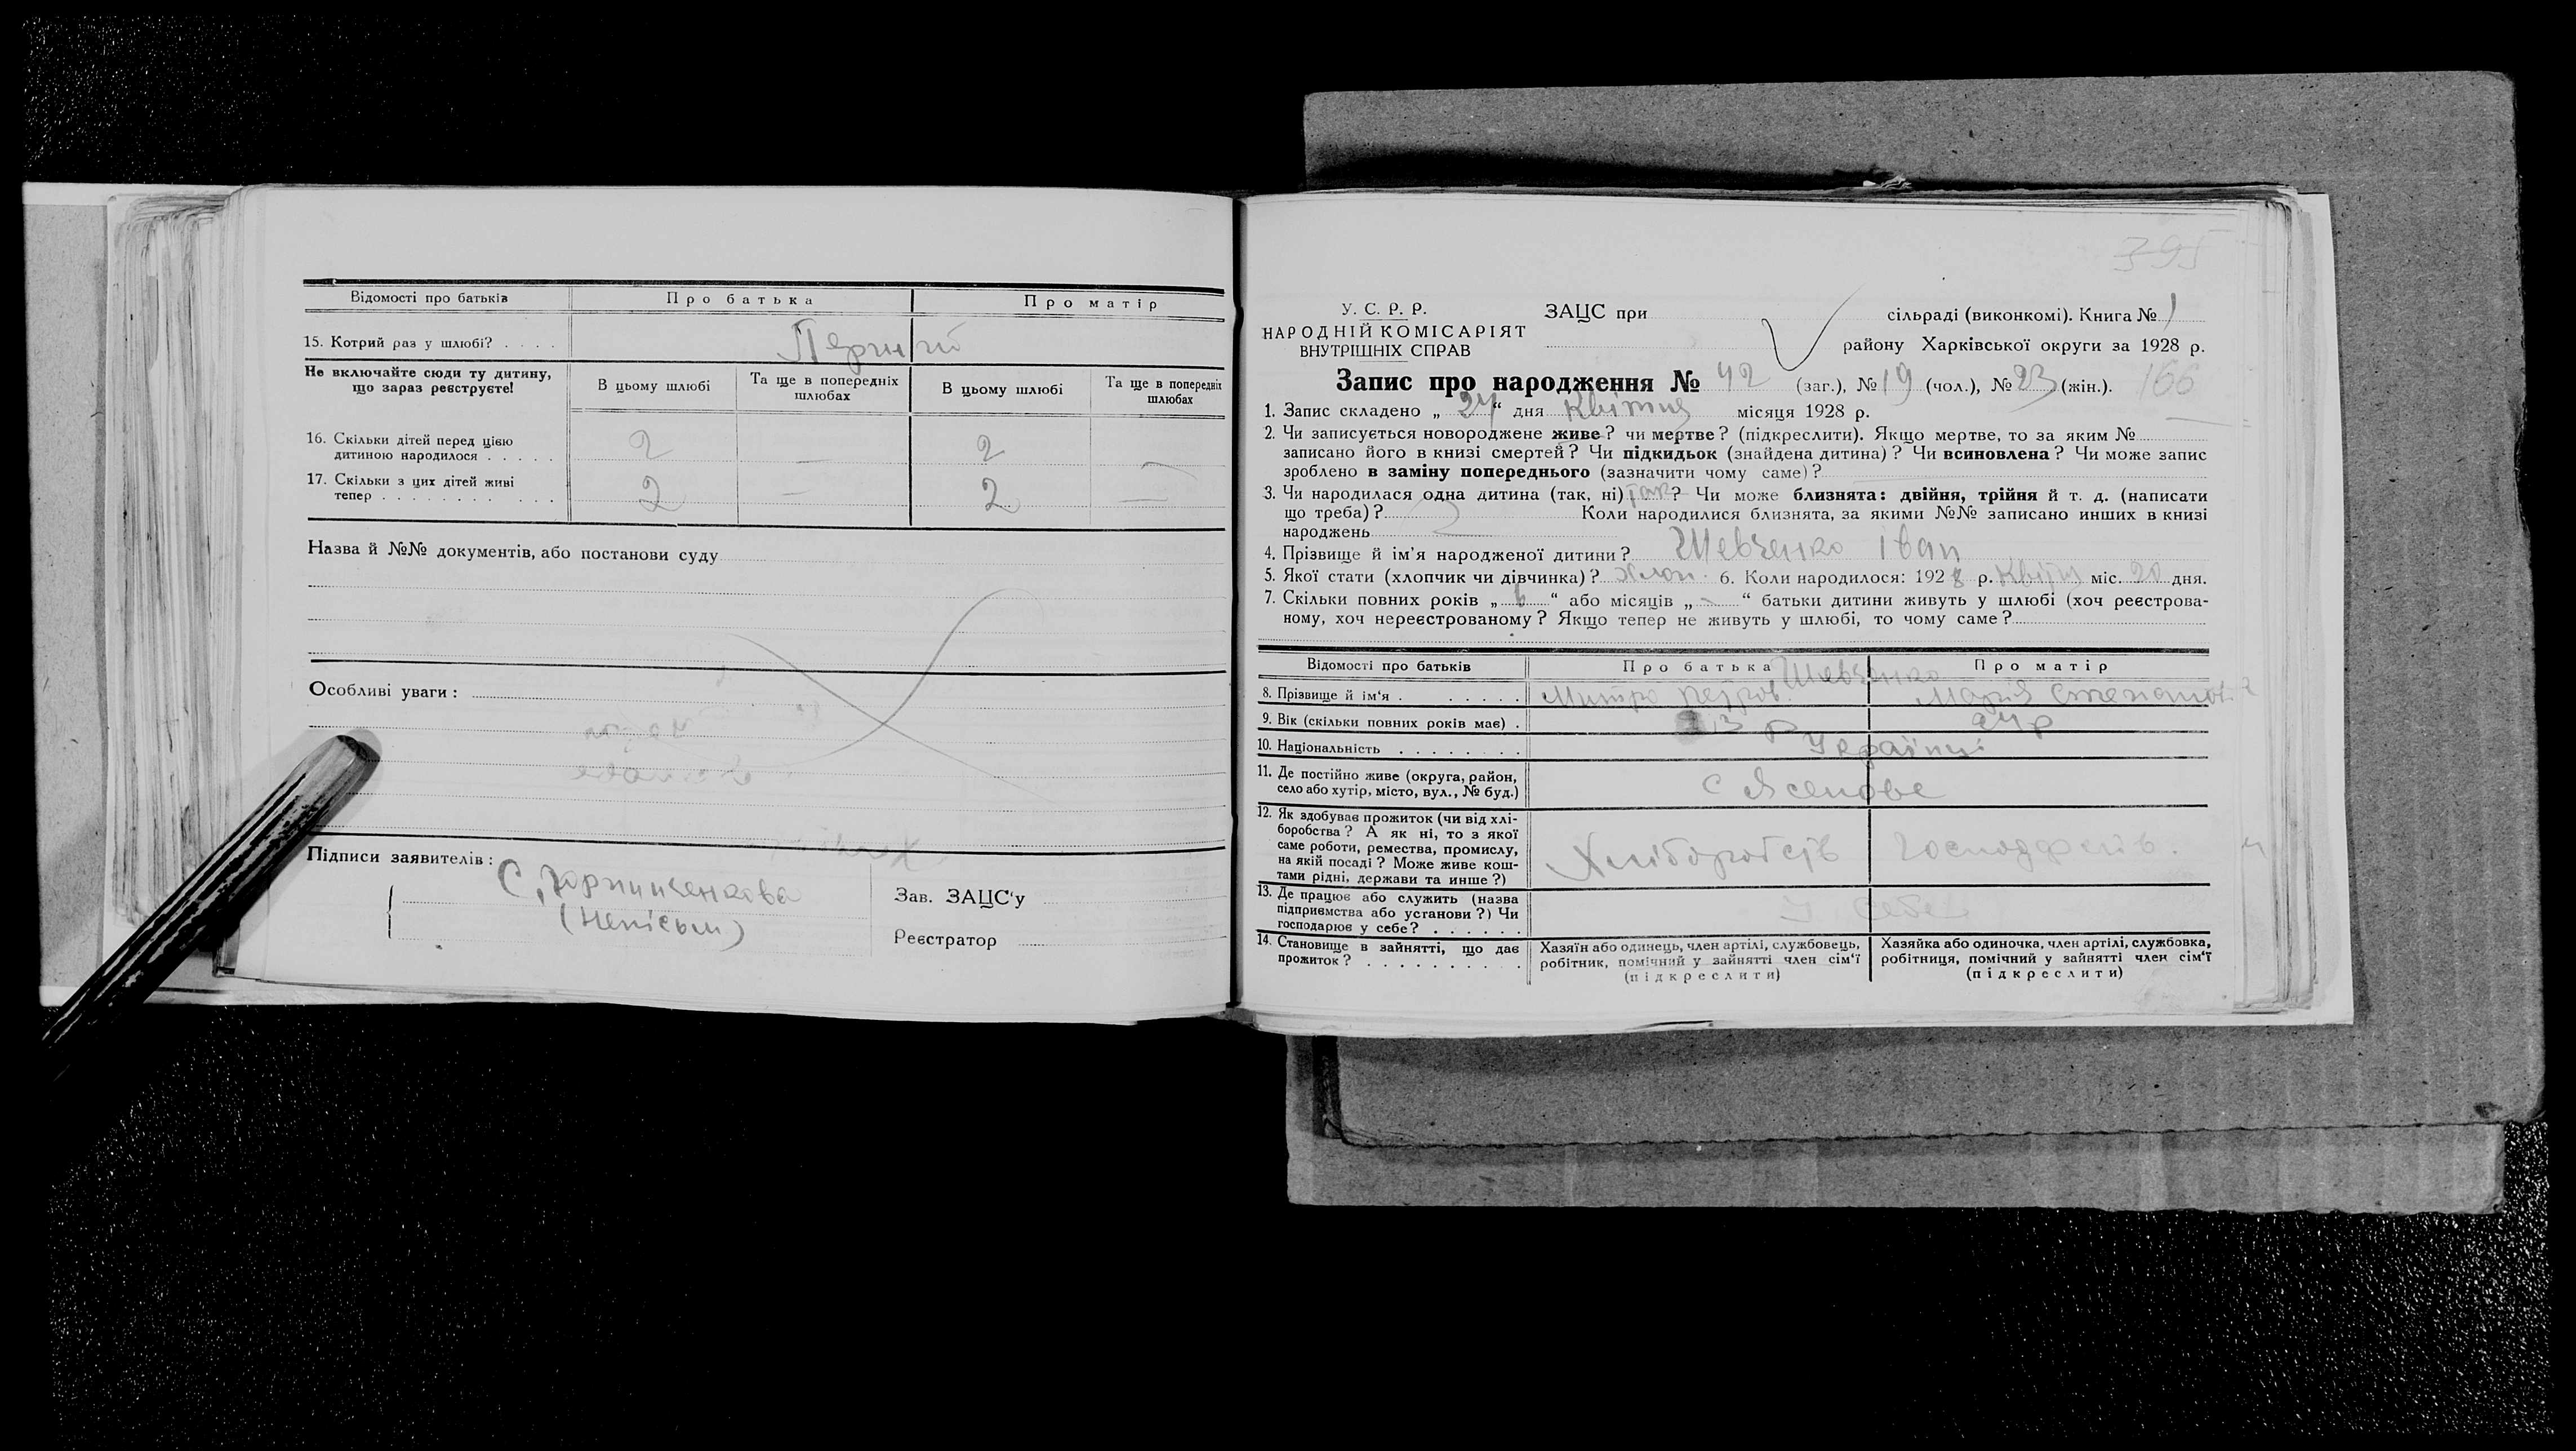 Відомості про батьків Про батька Про матір
15. Котрий раз у шлюбі? . . . . Перший
Не включайте сюди ту дитину, що зараз реєструєте!
В цьому шлюбі Та ще в попередніх шлюбах В цьому шлюбі Та ще в попередніх шлюбах
16. Скільки дітей перед цією
дитиною народилося . . . . . 2 — 2 —
17. Скільки з цих дітей живі
тепер . . . . . . . . . . . 2 — 2 —
Назва й №№ документів, або постанови суду
Особливі уваги :
Підписи заявителів :
(Неписьм)
Зав. ЗАЦС'у
Реєстратор
395
У. С. Р. Р.
НАРОДНІЙ КОМІСАРІЯТ
ВНУТРІШНІХ СПРАВ
ЗАЦС при сільраді (виконкомі). Книга № 1
району Харківської округи за 1928 р.
Запис про народження № 42 (заг.), № 19 (чол.), № 23 (жін.). 166
1. Запис складено „ 24 “ дня Квітня місяця 1928 р.
2. Чи записується новороджене живе? чи мертве? (підкреслити). Якщо мертве, то за яким №
записано його в книзі смертей? Чи підкидьок (знайдена дитина)? Чи всиновлена? Чи може запис
зроблено в заміну попереднього (зазначити чому саме)?
3. Чи народилася одна дитина (так, ні) так? Чи може близнята: двійня, трійня й т. д. (написати
що треба)? Коли народилися близнята, за якими №№ записано инших в книзі
народжень
4. Прізвище й ім'я народженої дитини? Шевченко Іван
5. Якої стати (хлопчик чи дівчинка)? Хлоп. 6. Коли народилося: 1928 р. Квітн міс. 20 дня.
7. Скільки повних років „ 6 “ або місяців „ — “ батьки дитини живуть у шлюбі (хоч реєстрова-
ному, хоч нереєстрованому? Якщо тепер не живуть у шлюбі, то чому саме?
Відомості про батьків Про батька Про матір
Шевченко
8. Прізвище й ім'я . . . . . . Митро Петров. Марія Степанов.
9. Вік (скільки повних років має) . р 24 р
10. Національність . . . . . . . . Українці
11. Де постійно живе (округа, район,
село або хутір, місто, вул., № буд.) с Ясенове
12. Як здобуває прожиток (чи від хлі-
боробства? А як ні, то з якої
саме роботи, ремества, промислу,
на якій посаді? Може живе кош-
тами рідні, держави та инше?) Хліборобств
13. Де працює або служить (назва
підприємства або установи?) Чи
господарює у себе? . . . . . . У себе
14. Становище в зайнятті, що дає
прожиток? . . . . . . . . . .
Хазяїн або одинець, член артілі, службовець,
робітник, помічний у зайнятті член сім'ї
(підкреслити)
Хазяйка або одиночка, член артілі, службовка,
робітниця, помічний у зайнятті член сім'ї
(підкреслити)